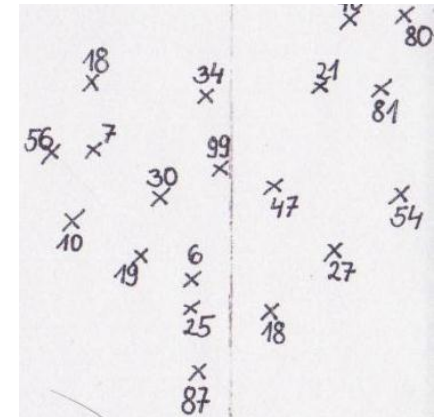 80
18
34
21
81
56
7
99
30
47
54
10
19
6
27
25
18
87